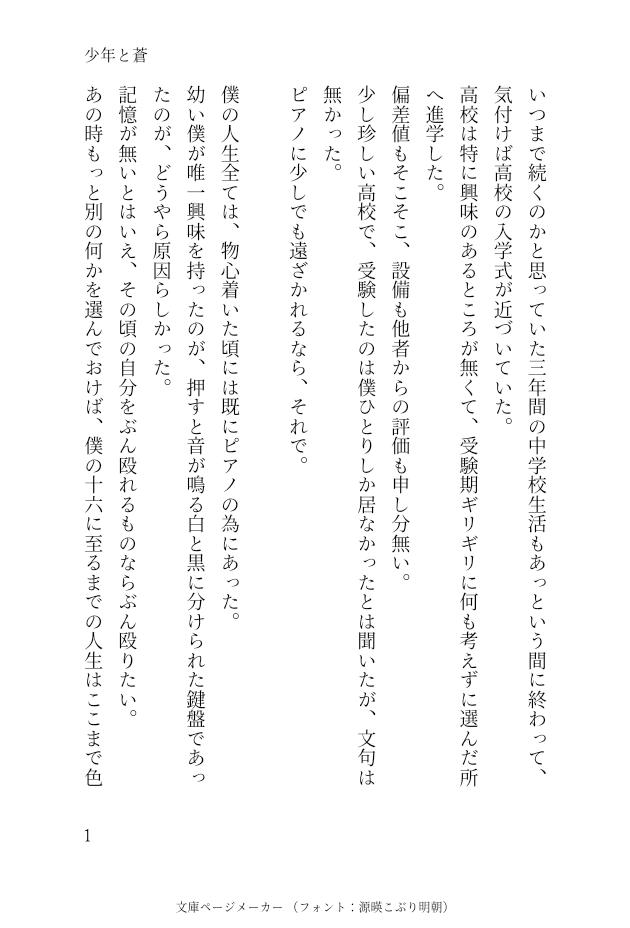 少年と蒼
いつまで続くのかと思っていた三年間の中学校生活もあっという間に終わって、
気付けば高校の入学式が近づいていた。
高校は特に興味のあるところが無くて、受験期ギリギリに何も考えずに選んだ所
へ進学した。
偏差値もそこそこ、設備も他者からの評価も申し分無い。
少し珍しい高校で、受験したのは僕ひとりしか居なかったとは聞いたが、文句は
無かった。
ピアノに少しでも遠ざかれるなら、それで。
僕の人生全ては、物心着いた頃には既にピアノの為にあった。
幼い僕が唯一興味を持ったのが、押すと音が鳴る白と黒に分けられた鍵盤であっ
たのが、どうやら原因らしかった。
記憶が無いとはいえ、その頃の自分をぶん殴れるものならぶん殴りたい。
あの時もっと別の何かを選んでおけば、僕の十六に至るまでの人生はここまで色
1
文庫ページメーカー（フォント：源暎こぶり明朝）